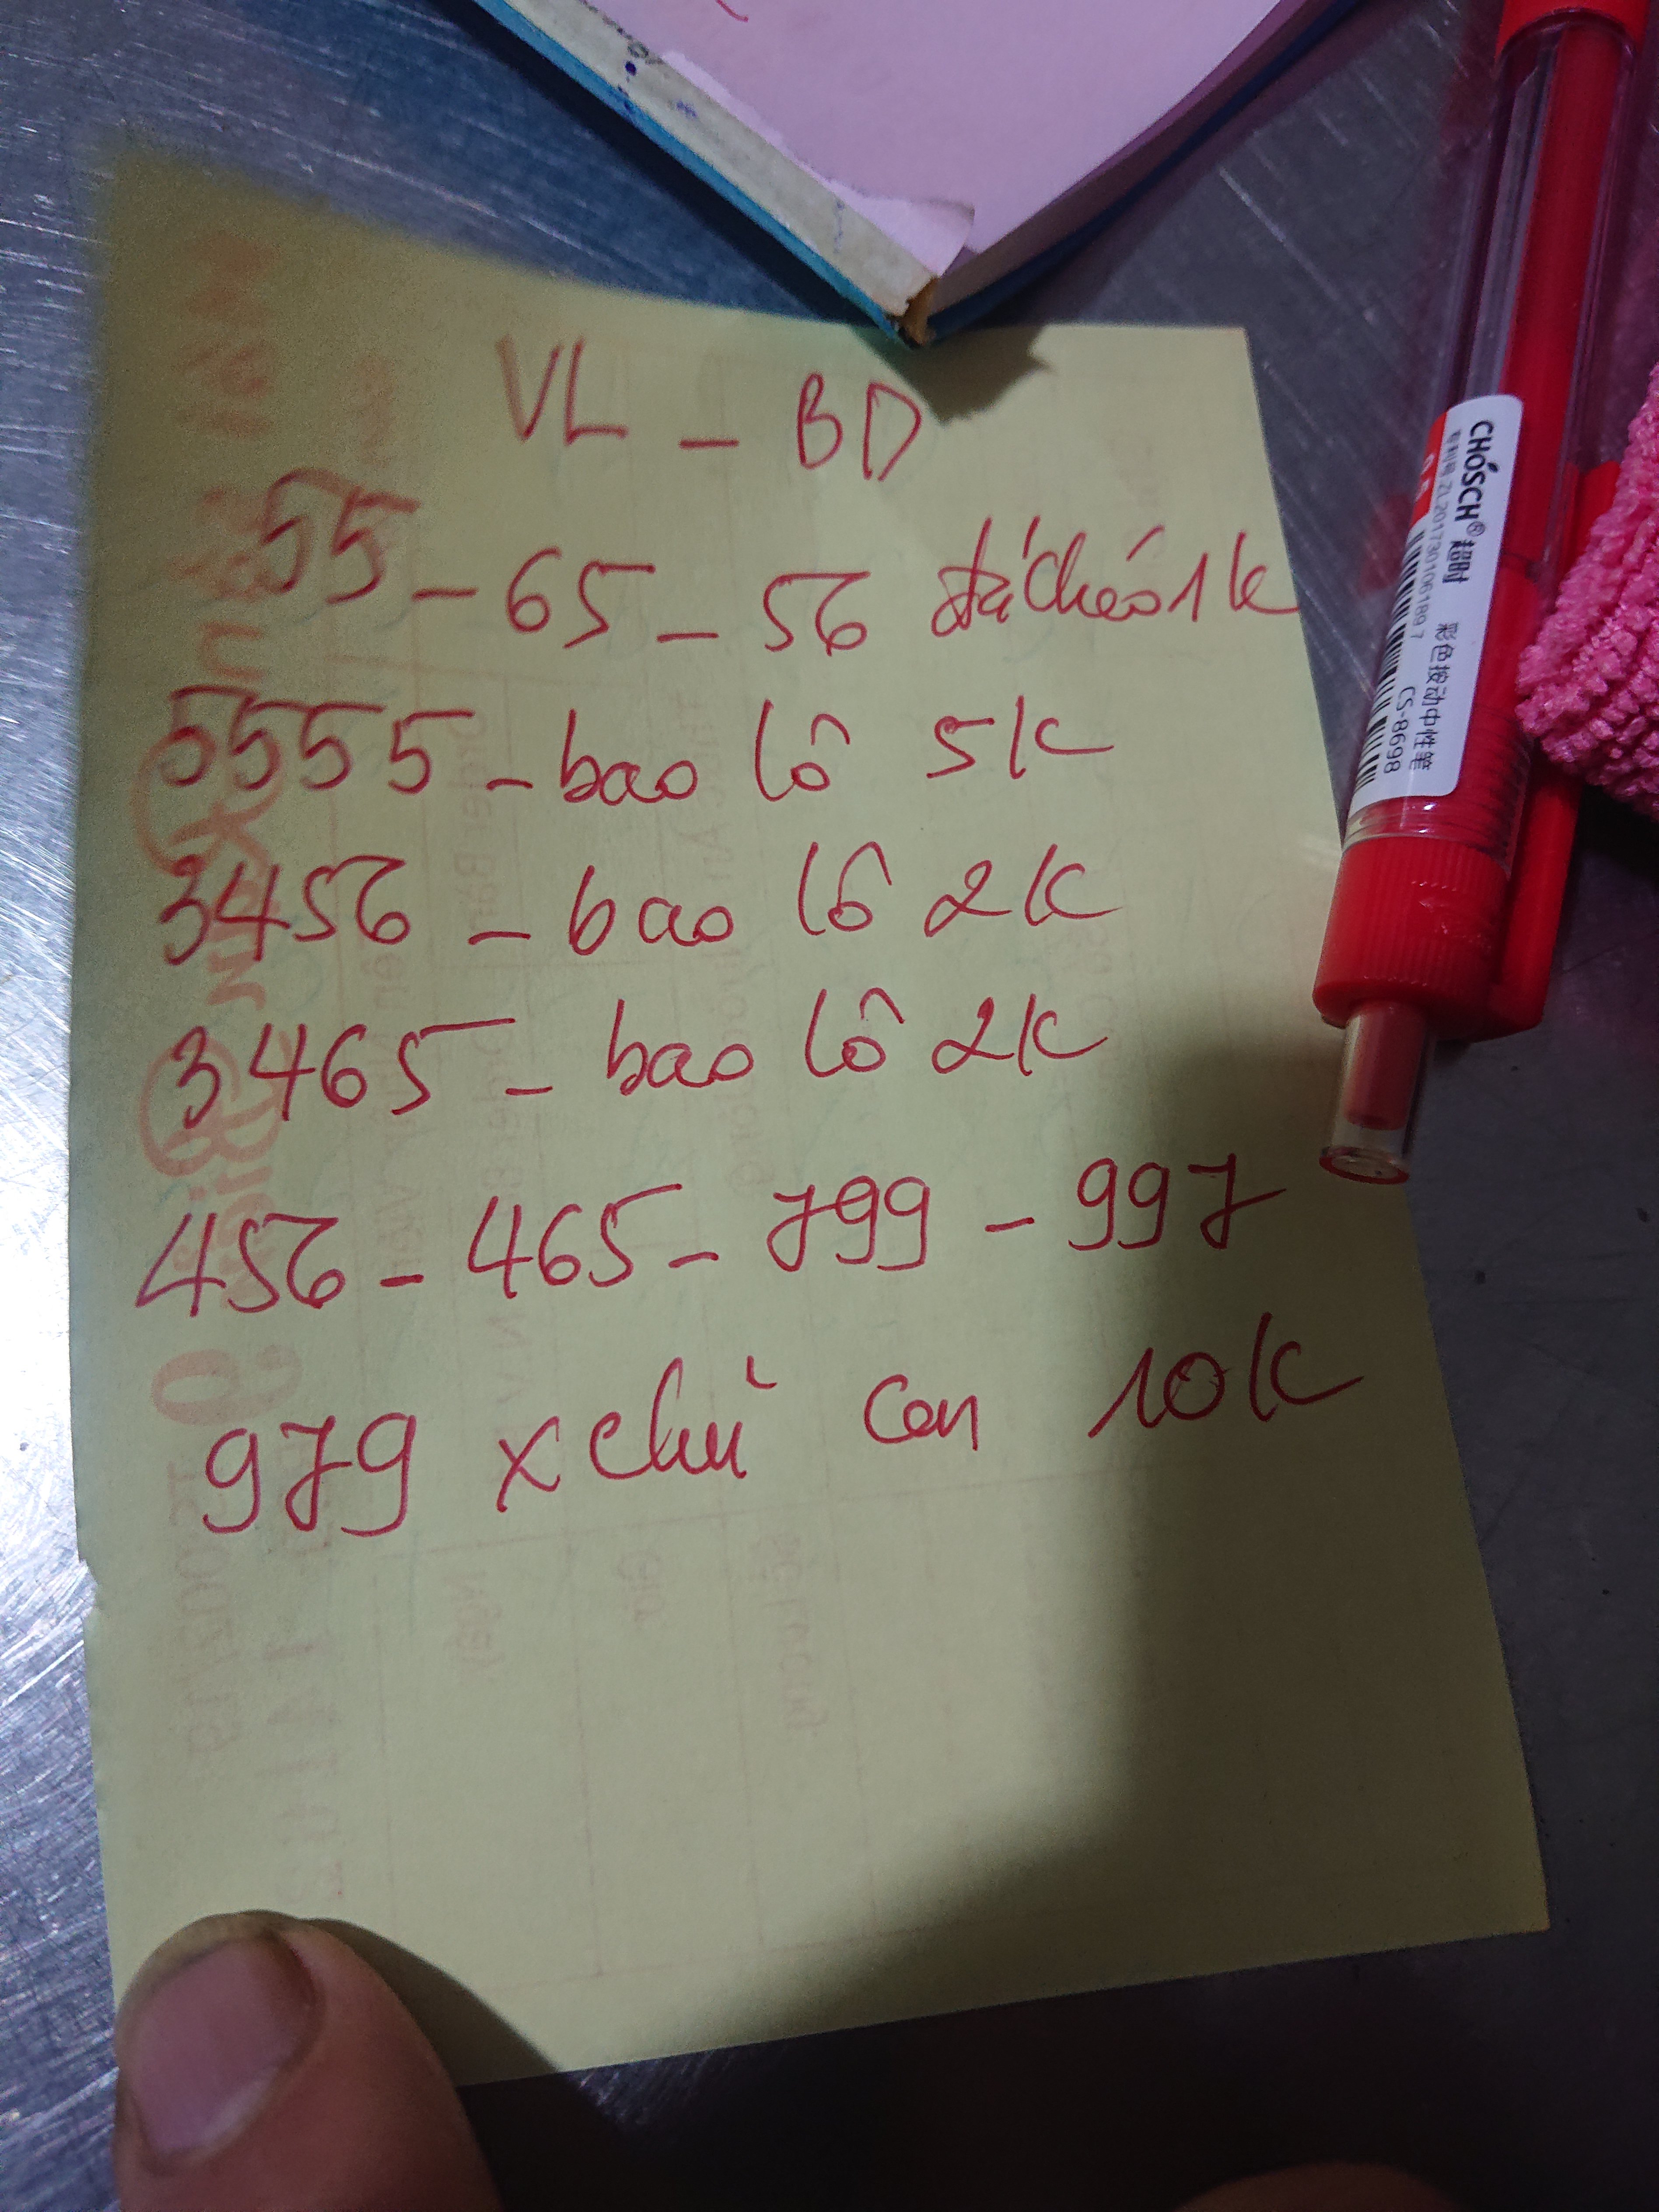 VL - BD
55 - 65 - 56 đá chéo 1k
5555 - bao lô 5k
3456 - bao lô 2k
3465 - bao lô 2k
456 - 465 - 799 - 997
979 x chủ con 10k
CHÓSCH® 超时
专利号 ZL201730106189.7
彩色按动中性笔
CS-8698